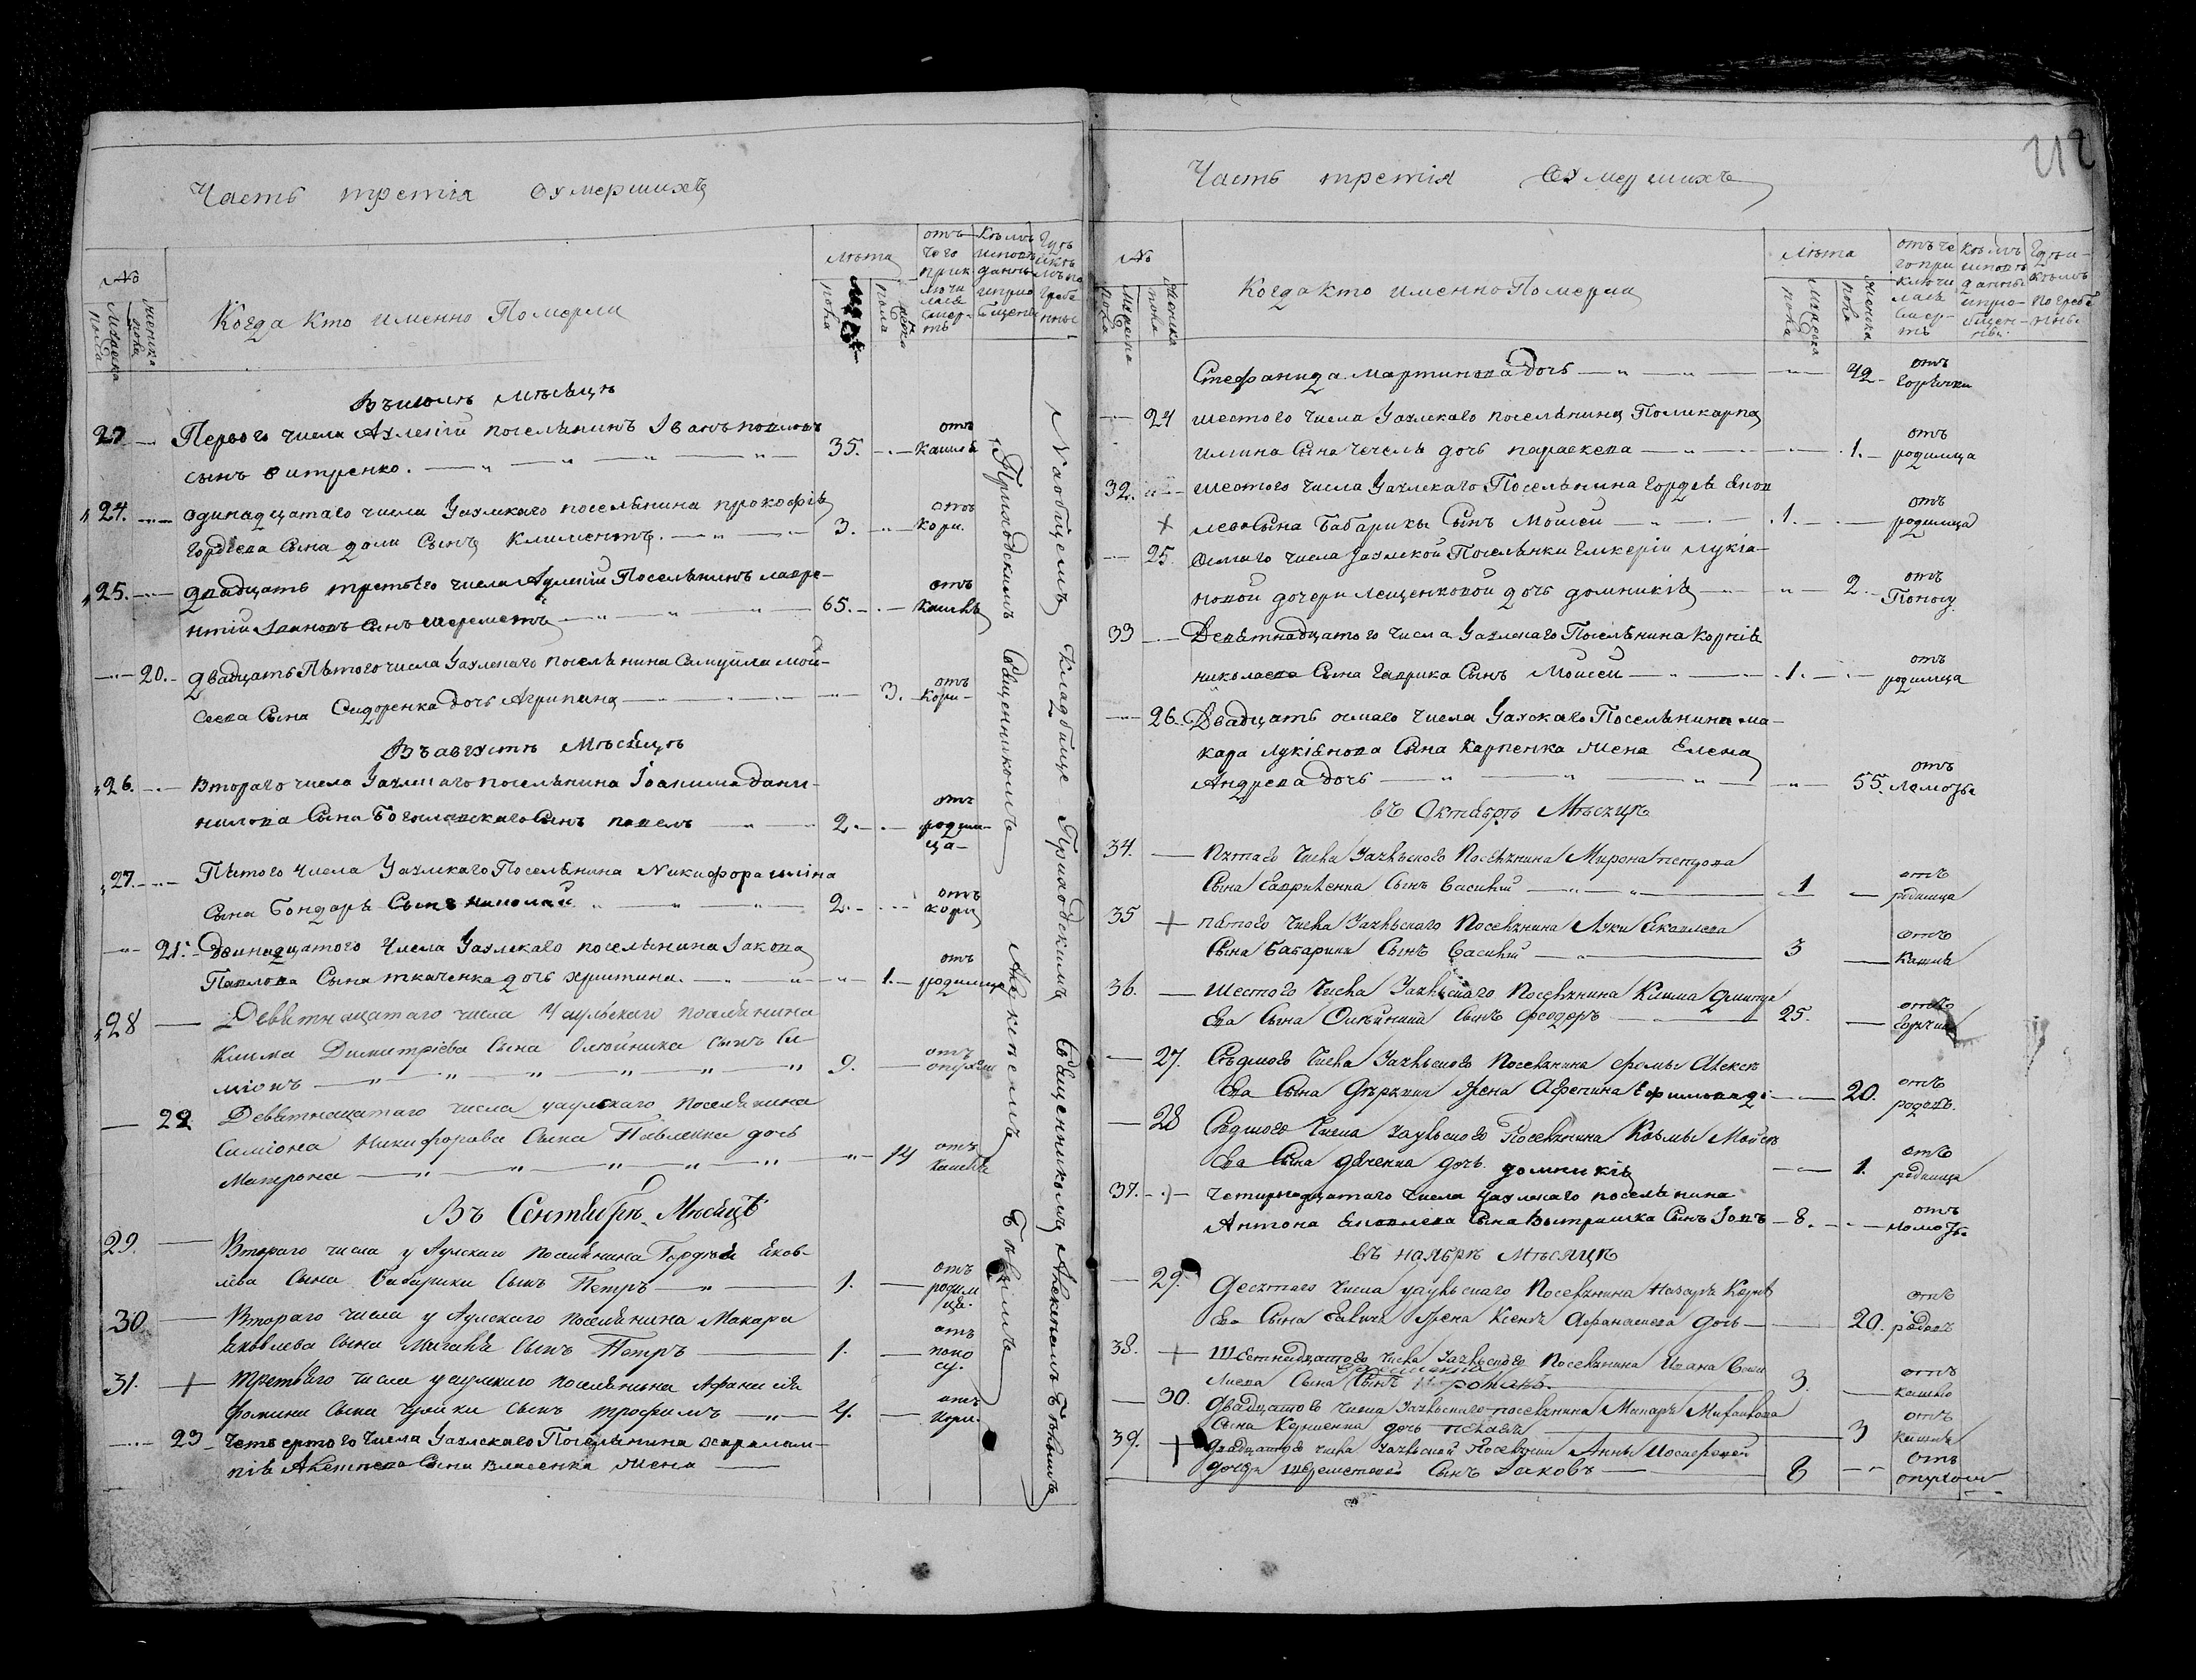 Часть третія о умершихъ
№
Мужеска пола
Женска пола
Когда кто именно Померли
лѣта
Мужеска пола
Женска пола
отъ чего приключилась смерть
Кѣмъ исповѣданы и приобщены
Гдѣ и кѣмъ погребены
Въ июлѣ мѣсяцѣ
23 Перваго числа поселянинъ Iванъ павловъ
сынъ Дитренко. 35. отъ кашлѣ
24. одинадцатаго числа Уаулскаго поселѣнина прокофіѣ
гордѣева Сына Сынъ Климентъ. 3. отъ кори.
25. двадцать третьего числа Поселѣнинъ лавре-
нтій Iвановъ Сынъ шереметъ 65. отъ кашлѣ
20. двадцать Пѣтого числа Уаулскаго поселѣнина Самуйла мой-
сеева Сына Сидоренка дочь Агрипина 3. отъ Кори
Въ августѣ Мѣсяцѣ
26. Втораго числа Уаулскаго поселѣнина Iоакима дани-
илова Сына Богуславскаго Сынъ павелъ 2. отъ родим-
ца
27. Пѣтого числа Уаулскаго Поселѣнина Никифора
Сына Бондарѣ Сынъ николай 2. отъ кори
21. Двинадцатого числа Уаулскаго поселѣнина Iакова
Павлова Сына ткаченка дочь христина. 1. отъ родимца
28 Девѣтнацатаго числа Уаульскаго поселѣнина
Клима Димитріева Сына Олѣйника сынъ Си-
міонъ 9. отъ опухли
22 Девѣтнацатаго числа уаулскаго поселѣнина
Симіона Никифорова Сына Павленка дочь
Матрона 14 отъ кашлѣ
Въ Сентѣбрѣ Мѣсяцѣ
29. Втораго числа уаулскаго поселѣнина Гордѣя Яков-
лева Сына Бабарики Сынъ Петръ 1. отъ родим
ца.
30 Втораго числа уаулскаго поселѣнина Макара
Яковлева Сына Сынъ Петръ 1. отъ поно
су.
31. + третьяго числа уаулскаго поселѣнина Афанасія
фомина Сына чумаки сынъ трофимъ 4. отъ кори.
23 четьвертого числа Уаулскаго Поселѣнина харалам-
піѣ Сына власенка жена
Приходскимъ Священникомъ Алексѣемъ Бѣлымъ
На общемъ кладбище Приходскимъ Священникомъ Алексѣемъ Бѣлымъ
Часть третія о умершихъ
212
№
Мужеска пола
Женска пола
Когда кто именно Померли
Лѣта
Мужеска пола
Женска пола
отъ чего приключилась смерть
кѣмъ исповѣданы и приобщены
Гдѣ и кѣмъ погребены
Стефанида мартинова дочь 42 отъ горѣчки
24 шестого числа Уаулскаго поселѣнина Поликарпа
Сына чечелѣ дочь параскева 1. отъ родимца
32. шестого числа Уаулскаго Поселѣнина гордѣѣ яков
+ лева Сына Бабарики Сынъ Моисей 1. отъ родимца
25. осмаго числа Уаулской Поселѣнки Гликеріи лукіа-
новой дочери лещенковой дочь домникіѣ 2. отъ Поносу
33 Девѣтнадцатого числа Уаулскаго Поселѣнина корніѣ
николаева Сына Гаврика Сынъ Моисей 1. отъ родимца
26. Двадцать осмаго числа Уаулскаго Поселѣнина ма-
кара лукіѣнова Сына Карпенка жена Елена
Андреева дочь 55. отъ ламозьѣ
въ Октѣбрѣ Мѣсяцѣ
34. Пятаго числа Уаульскаго Поселянина Мирона
Сына Гавриленка Сынъ Василий 1 отъ родимца
35 + пятого числа Уаульскаго Поселянина Луки Яковлева
Сына Бабарики Сынъ Василий 3 отъ Кашлѣ
36. Шестого числа Уаульскаго Поселянина Клима дмитрі
ева Сына Олейника Сынъ Феодоръ 25. отъ горячки
27. Седмого числа Уаульскаго Поселянина фомы Алексѣ
ева Сына жена Ефимова до 20. отъ родовъ.
28 Седмого числа Уаульскаго Поселянина Козмы Мойсѣ
ева Сына дочь домникіѣ 1. отъ родимца
37. четирнадцатаго числа уаулскаго поселѣнина
Антона Яковлева Сына Сынъ Iовъ 8. отъ ломозьѣ
въ ноябрѣ мѣсяцѣ
29. Десятого числа уаульскаго Поселянина Назарѣ Корнѣ
ева Сына жена Ксенѣ Афанасиева дочь 20. отъ родовъ
38. + Шестнадцатого числа Уаульскаго Поселянина Ивана Васи
лиева Сына Сынъ 3. отъ кашлю
30. двадцатого числа Уаульскаго поселянина Макарѣ Михайлова
Сына дочь 3 отъ Кашлѣ
39. + двадцатого числа Уаульской Поселянки Анны
дочери Шереметовой Сынъ Iаковъ 8 отъ опухоли